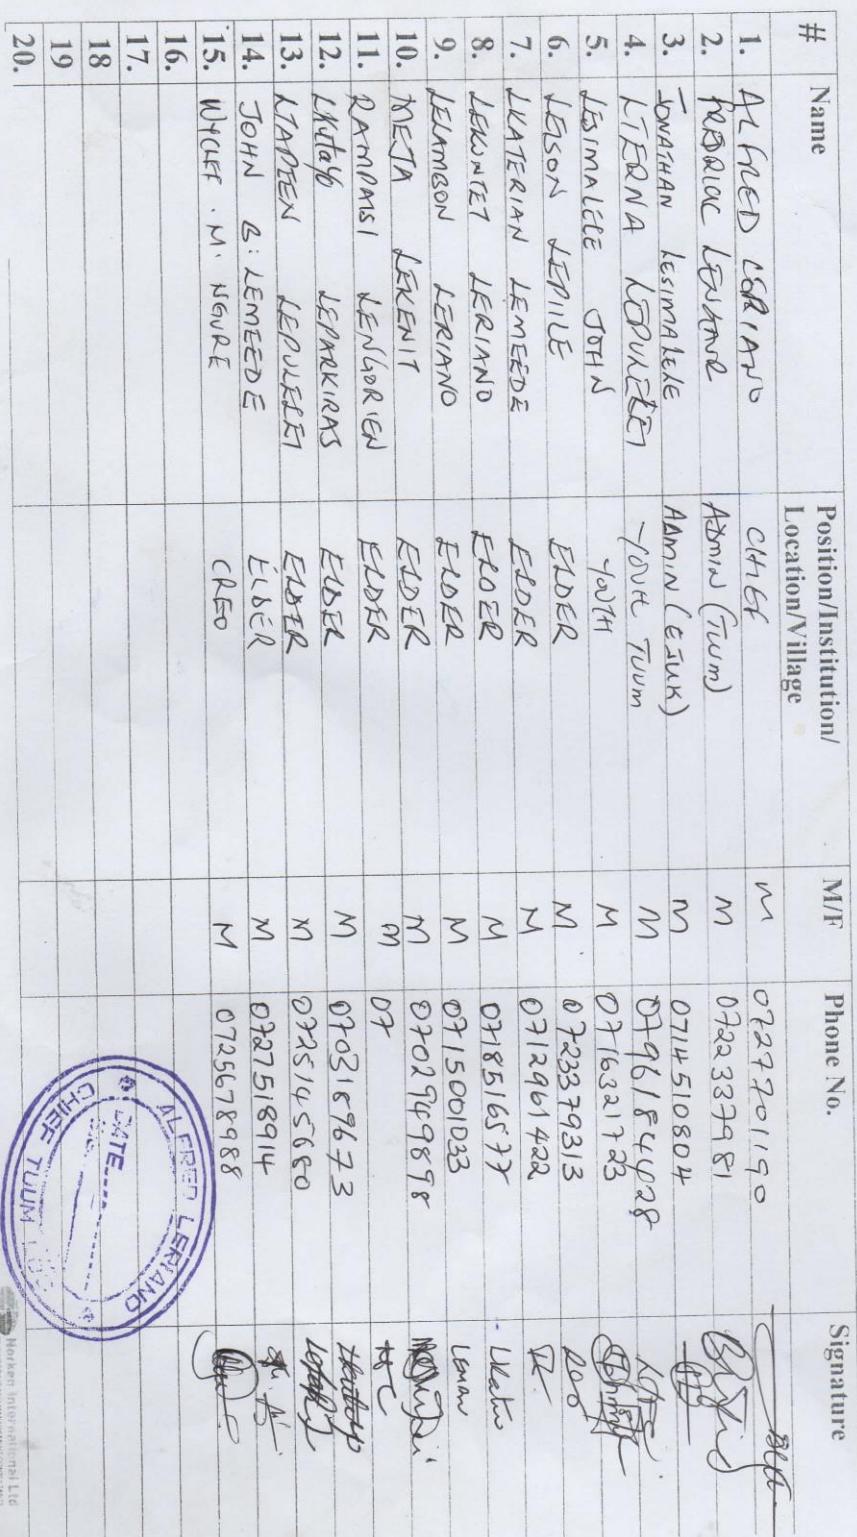 # Name Position/Institution/ Location/Village M/F Phone No. Signature
1. ALFRED LERIANO CHIEF M 0727701190
2. ADMIN (TUUM) M 0722337981
3. JONATHAN LESIMALELE ADMIN (EJUK) M 0714510804
4. LTERNA YOUTH TUUM M
5. LESIMALELE JOHN YOUTH M 0716321723
6. LELSON LEPIILE ELDER M 0723379313
7. LKATERIAN LEMEEDE ELDER M 0712961422
8. LEKUNTET LERIANO ELDER M 0718516577
9. LELAMBON LERIANO ELDER M 0715001033
10. META LEKENIT ELDER M 0702949898
11. RAMPAISI LENGORIEN ELDER M 07
12. LKUTAYO LEPARKIRAS ELDER M 0703189673
13. LTAPEEN LEPULELEI ELDER M 0725145680
14. JOHN B. LEMEEDE ELDER M 0727518914
15. WYCLEF . M. NGURE CREO M 0725678988
16.
17.
18
19
20.
ALFRED LERIANO
DATE
CHIEF TUUM LOC
Norken International Ltd